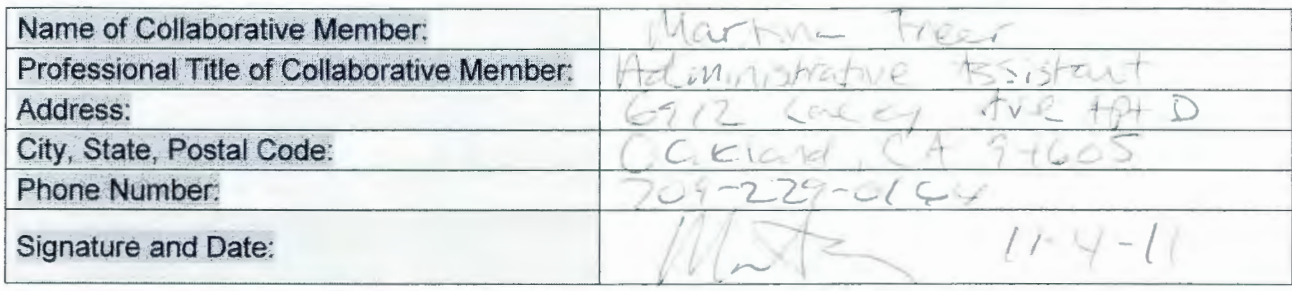 Name of Collaborative Member: Freer
Professional Title of Collaborative Member: Administrative Assistant
Address: 6912 Ave Apt D
City, State, Postal Code: CA 94605
Phone Number:
Signature and Date: 11-4-11